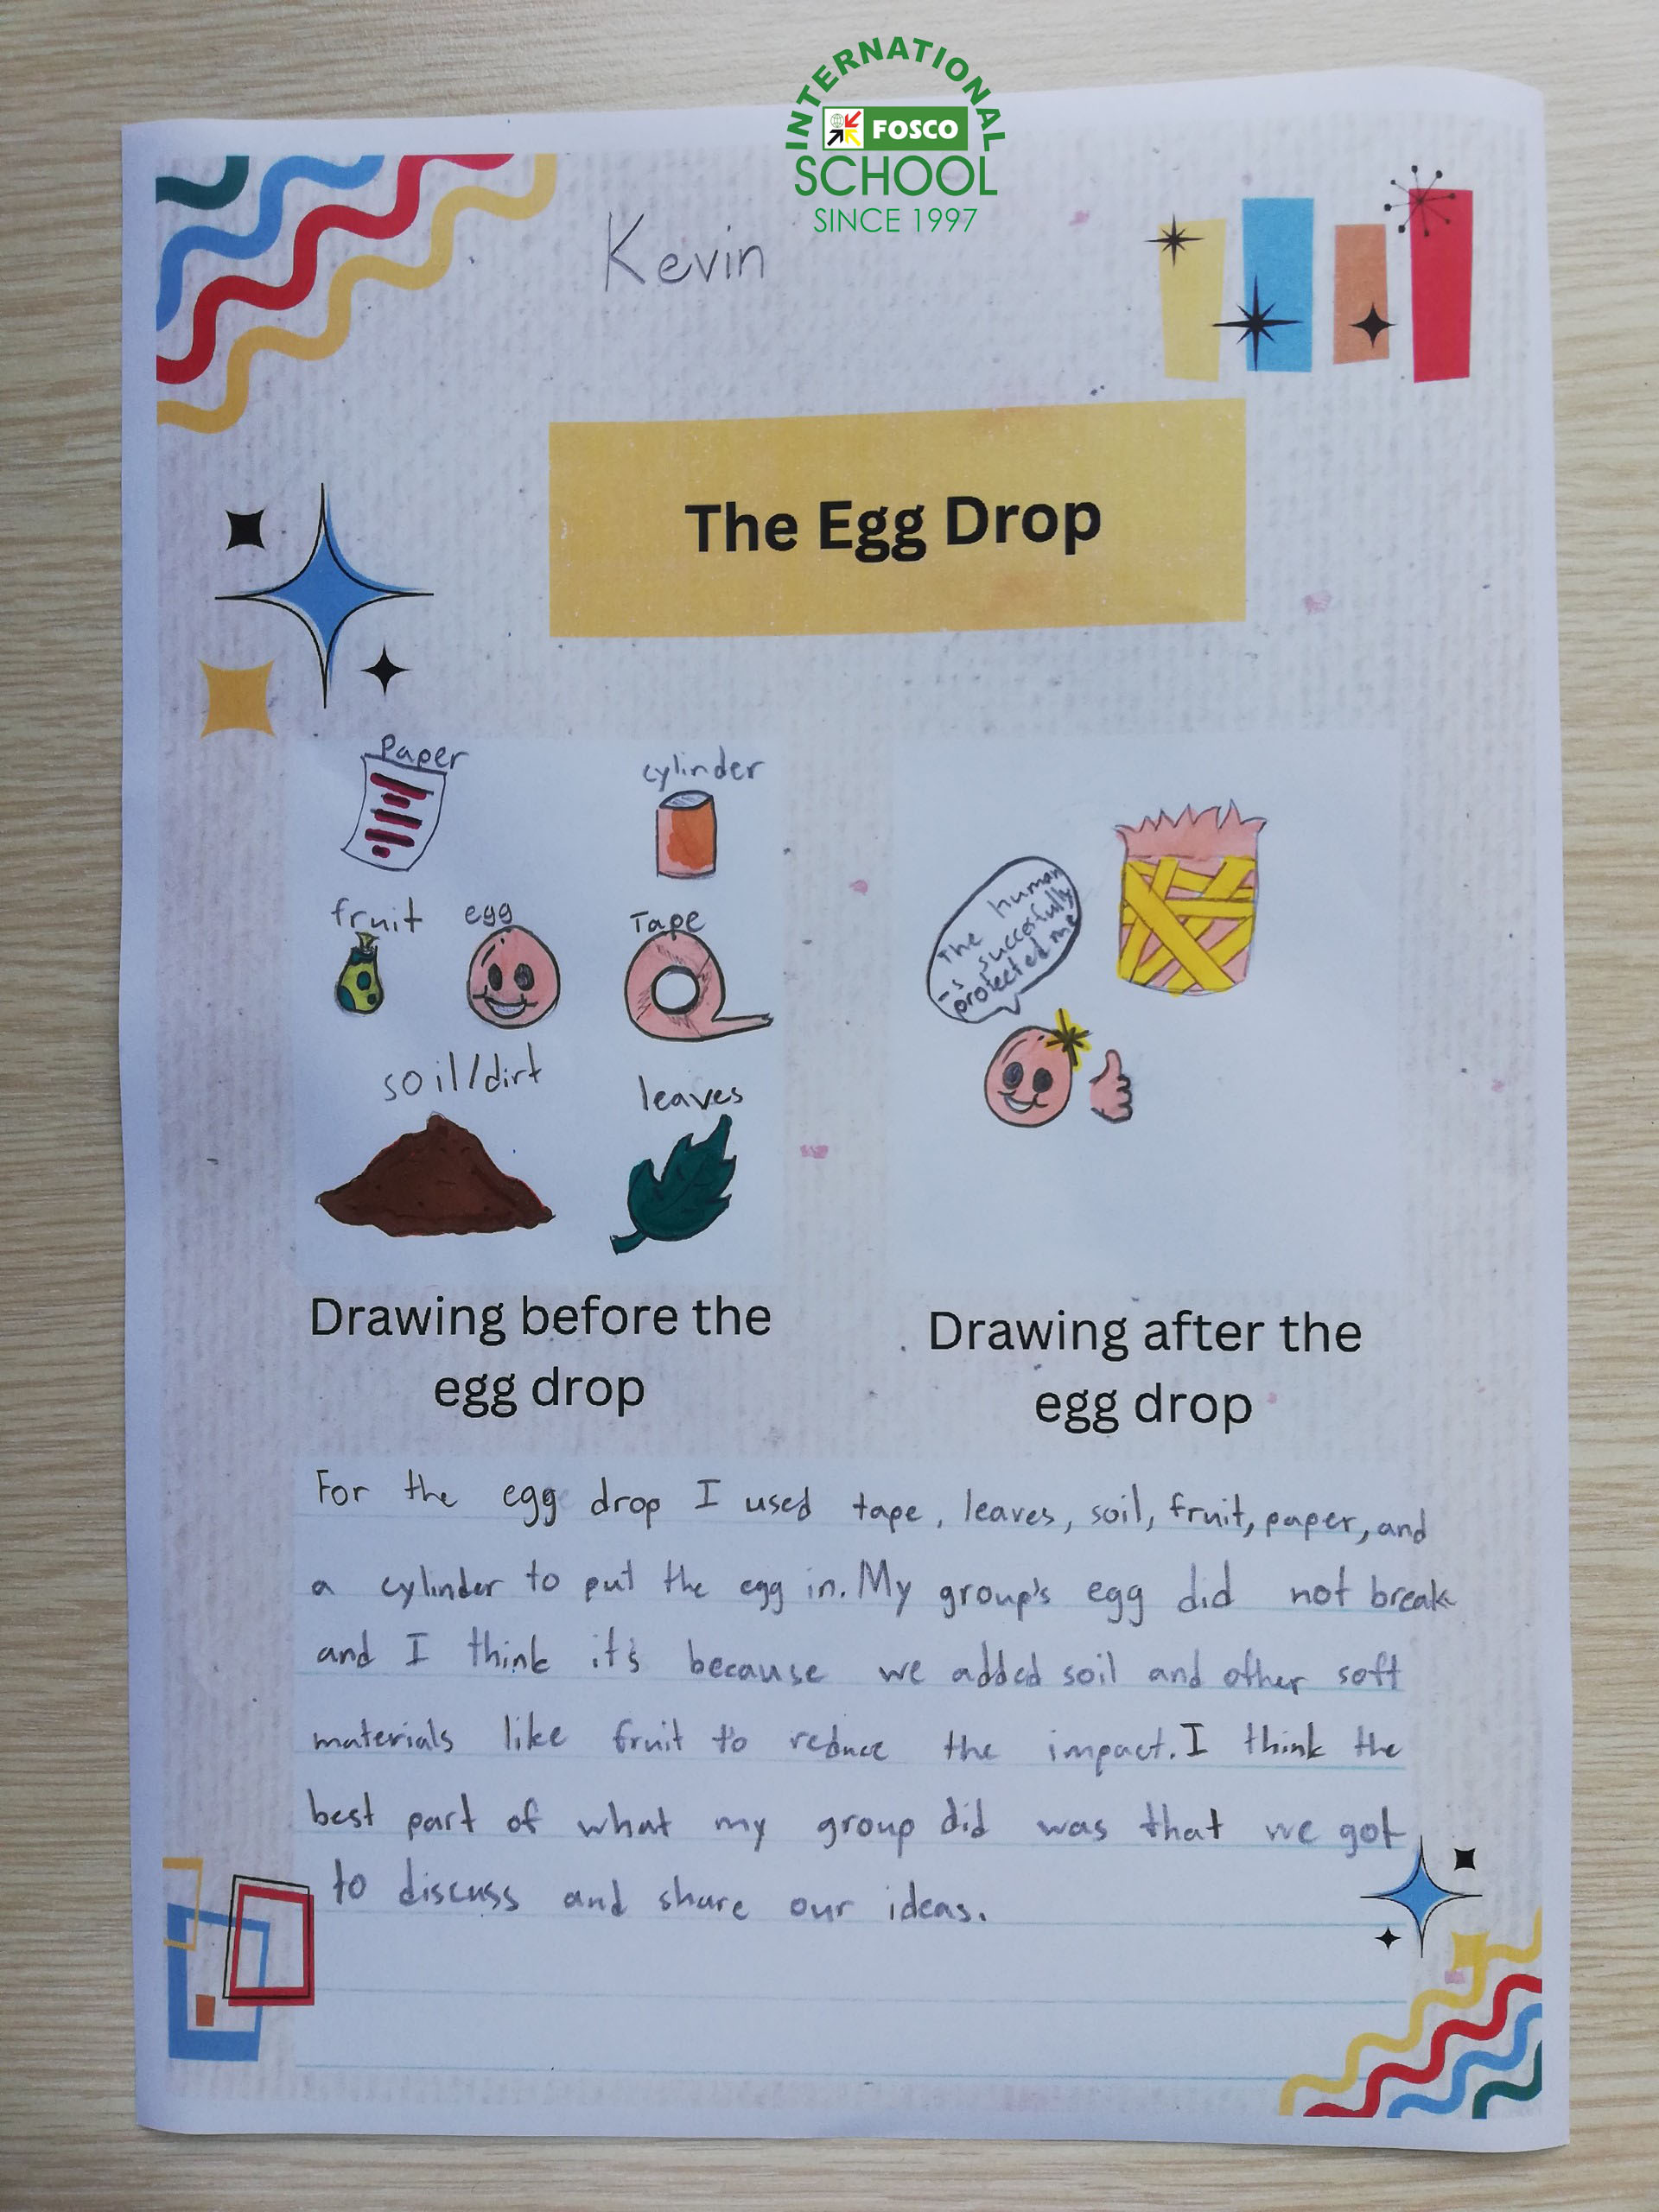 INTERNATIONAL
FOSCO
SCHOOL
SINCE 1997
Kevin
The Egg Drop
Paper
cylinder
fruit
egg
Tape
soil/dirt
leaves
The human
-s succosfully
protected me
Drawing before the
egg drop
Drawing after the
egg drop
For the egg drop I used tape, leaves, soil, fruit, paper, and
a cylinder to put the egg in. My group's egg did not break
and I think it's because we added soil and other soft
materials like fruit to reduce the impact. I think the
best part of what my group did was that we got
to discuss and share our ideas.